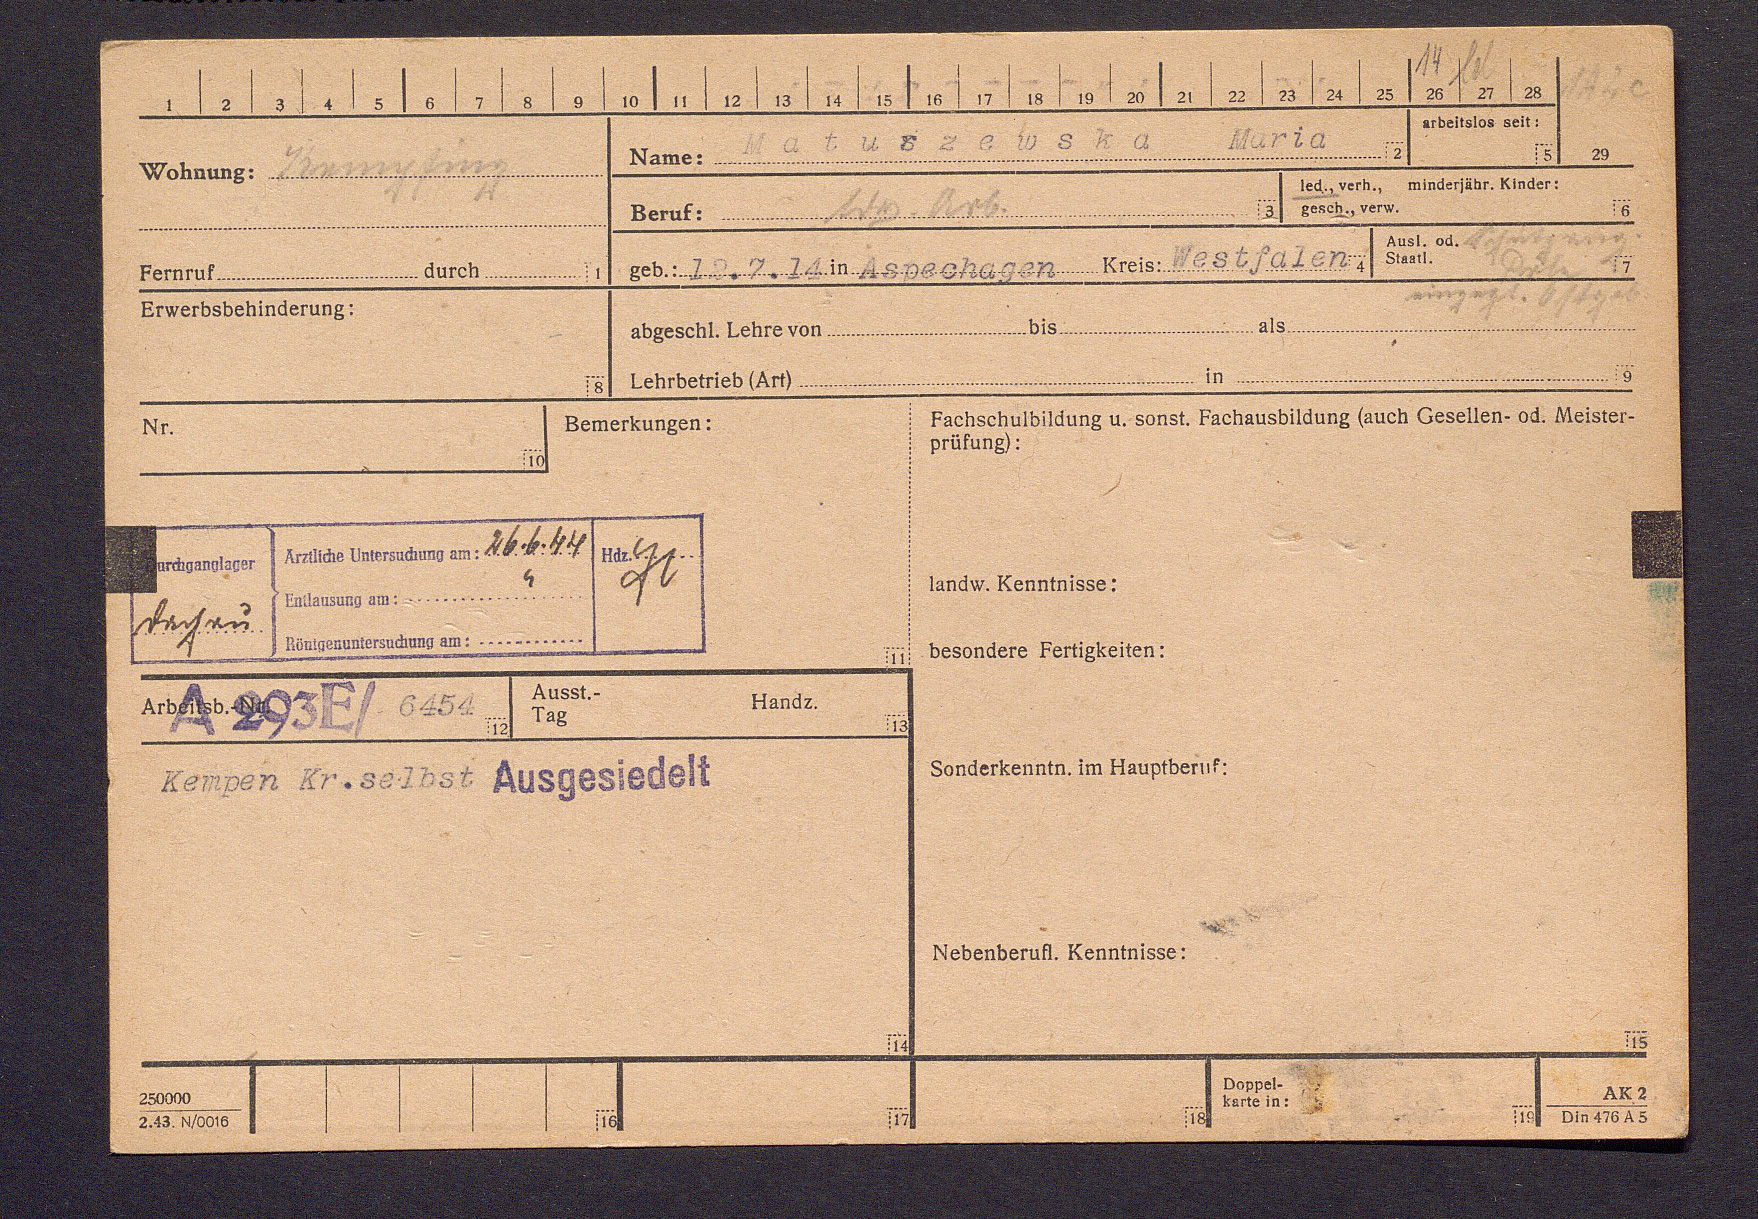 14
1 2 3 4 5 6 7 8 9 10 11 12 13 14 15 16 17 18 19 20 21 22 23 24 25 26 27 28
Wohnung:
Name: Matuszewska Maria 2
arbeitslos seit:
5 29
Beruf: Arb. 3
led., verh., minderjähr. Kinder:
gesch., verw. 6
Fernruf durch 1
geb.: 12.7.14 in Aspechagen Kreis: Westfalen 4
Ausl. od.
Staatl. 7
Erwerbsbehinderung:
8
abgeschl. Lehre von bis als
Lehrbetrieb (Art) in 9
Nr.
10
Bemerkungen:
Fachschulbildung u. sonst. Fachausbildung (auch Gesellen- od. Meister-
prüfung):
urchganglager
Dachau
Ärztliche Untersuchung am: 26.6.44
Entlausung am: "
Röntgenuntersuchung am:
Hdz.
11
landw. Kenntnisse:
besondere Fertigkeiten:
Arbeitsb.-Nr. A 293E/ 6454 12
Ausst.-
Tag
Handz.
13
Kempen Kr.selbst Ausgesiedelt
14
Sonderkenntn. im Hauptberuf:
Nebenberufl. Kenntnisse:
15
250000
2.43. N/0016
16 17 18
Doppel-
karte in:
19
AK 2
Din 476 A 5